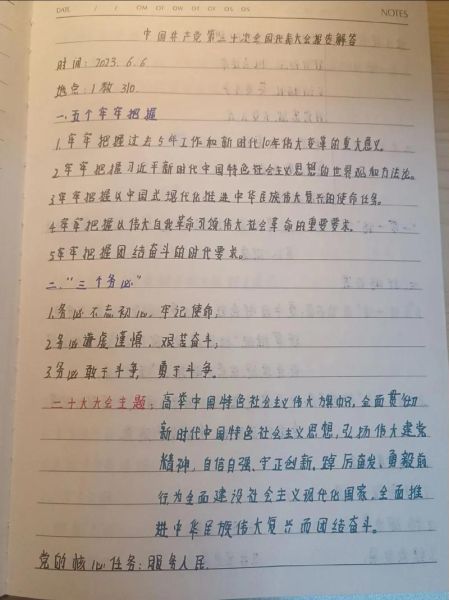 DATE / / OM OT OW OT OF OS OS
NOTES
中国共产党第二十次全国代表大会报告解答
时间: 2023.6.6
地点: 1教310
一.五个牢牢把握
1.牢牢把握过去5年工作和新时代10年伟大变革的重大意义。
2.牢牢把握习近平新时代中国特色社会主义思想的世界观和方法论。
3.牢牢把握以中国式现代化推进中华民族伟大复兴的使命任务。
4.牢牢把握以伟大自我革命引领伟大社会革命的重要要求。
5.牢牢把握团结奋斗的时代要求。
二."三个务必"
1.务必不忘初心、牢记使命,
2.务必谦虚谨慎、艰苦奋斗,
3.务必敢于斗争、勇于斗争。
二十大大会主题: 高举中国特色社会主义伟大旗帜,全面贯彻
新时代中国特色社会主义思想,弘扬伟大建党
精神,自信自强、守正创新,踔厉奋发、勇毅前
行为全面建设社会主义现代化国家、全面推
进中华民族伟大复兴而团结奋斗。
党的核心任务:服务人民.